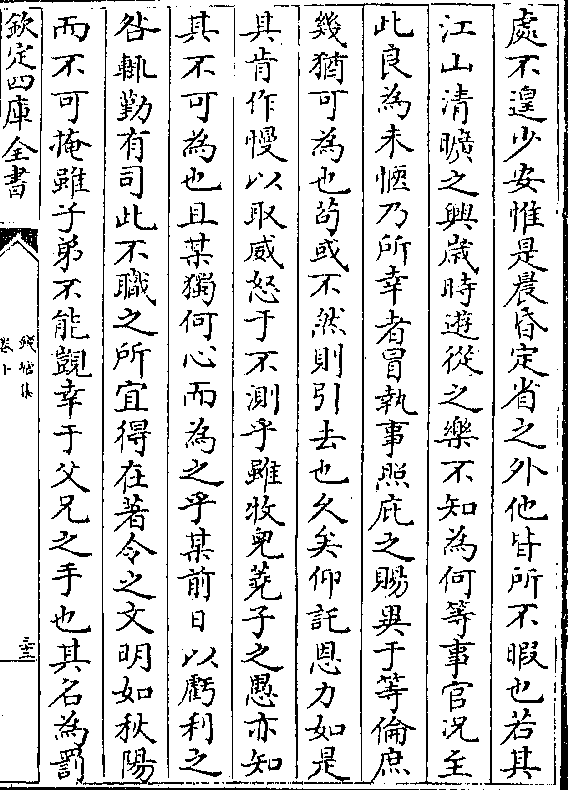 處不遑少安惟是晨昏定省之外他皆所不暇也若其
江山清曠之興歳時遊從之樂不知為何等事官况主
此良為未愜乃所幸者冒執事照庇之賜異于等倫庶
幾猶可為也茍或不然則引去也久矣仰託恩力如是
具肯作慢以取威怒于不測乎雖牧兒蕘子之愚亦知
其不可為也且某獨何心而為之乎某前日以虧利之
咎輒勤有司此不職之所宜得在著令之文明如秋陽
而不可掩雖子弟不能覬幸于父兄之手也其名為罰
欽定四庫全書